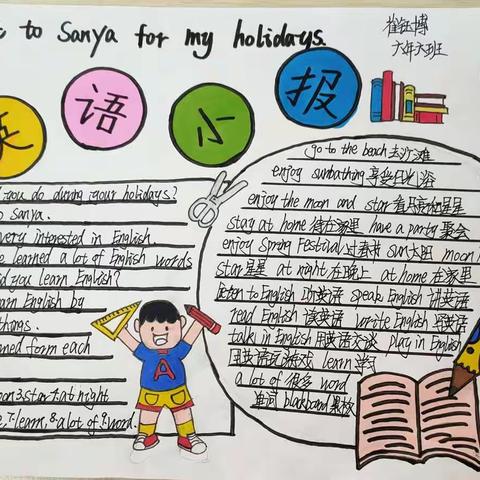 to Sanya for my holidays.
崔钰博
六年六班
英 语 小 报
you do during your holidays?
Sanya.
very interested in English
learned a lot of English words
did you learn English?
English by
things.
form each
at night
learn, 8 a lot of 9 word.
go to the beach 去沙滩
enjoy sunbathing 享受日光浴
enjoy the moon and star 看月亮和星星
stay at home 待在家里 have a party 聚会
enjoy Spring Festival 过春节 sun 太阳 moon
star 星星 at night 在晚上 at home 在家里
listen to English 听英语 speak English 讲英语
read English 读英语 write English 写英语
talk in English 用英语交谈 play in English
用英语玩游戏 learn 学习
a lot of 很多 word
单词 blackboard 黑板
A